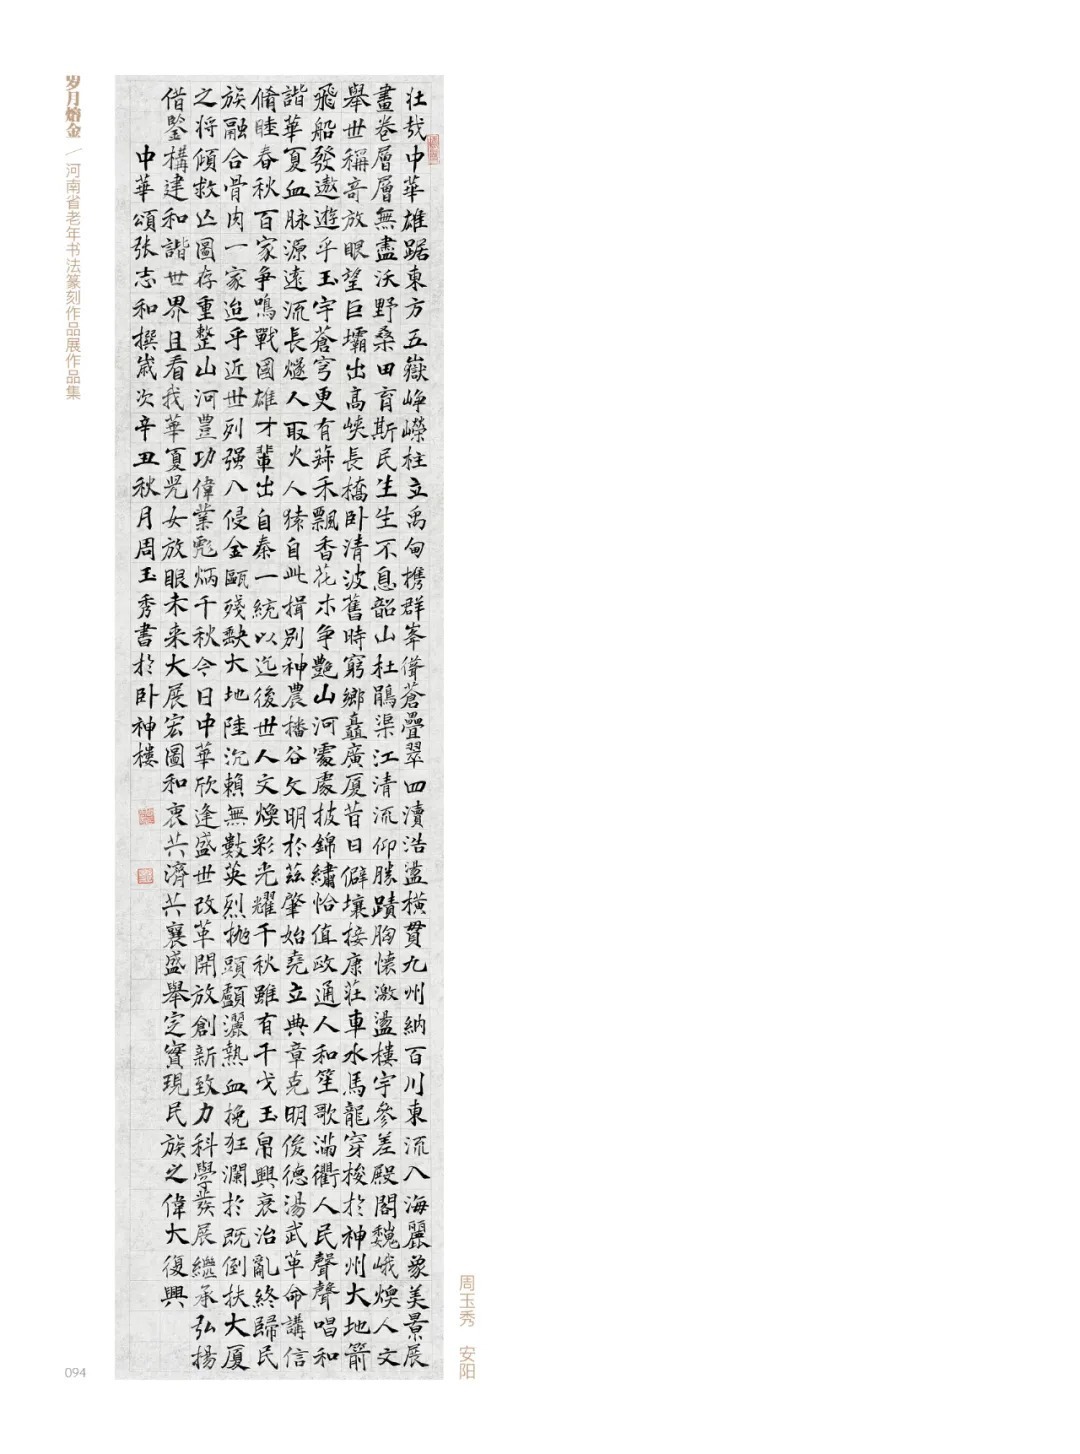 岁月熔金 / 河南省老年书法篆刻作品展作品集
壮哉中華雄踞東方五嶽峥嶸柱立禹甸携群峯聳蒼疊翠四瀆浩盪橫貫九州納百川東流入海麗象美景展
畫卷層層無盡沃野桑田育斯民生生不息韶山杜鵑渠江清流仰勝蹟胸懷激盪樓宇參差殿閣巍峨煥人文
舉世稱竒放眼望巨壩出高峽長橋卧清波舊時窮鄉矗廣厦昔日僻壤接康莊車水馬龍穿梭於神州大地箭
飛船發遨遊乎玉宇蒼穹更有禾飄香花木争艷山河處處披錦繡恰值政通人和笙歌滿衢人民聲聲唱和
諧華夏血脉源遠流長燧人取火人猿自此揖别神農播谷文明於兹肇始堯立典章克明俊德湯武革命講信
脩睦春秋百家争鳴戰國雄才輩出自秦一統以迄後世人文煥彩光耀千秋雖有干戈玉帛興衰治亂終歸民
族融合骨肉一家迨乎近世列强入侵金甌殘缺大地陸沉賴無數英烈抛頭顱灑熱血挽狂瀾於既倒扶大厦
之将傾救亾圖存重整山河豐功偉業彪炳千秋今日中華欣逢盛世改革開放創新致力科學發展繼承弘揚
借鑒構建和諧世界且看我華夏兒女放眼未来大展宏圖和衷共濟共襄盛舉定實現民族之偉大復興
中華頌張志和撰嵗次辛丑秋月周玉秀書於卧神樓
周玉秀 安阳
094